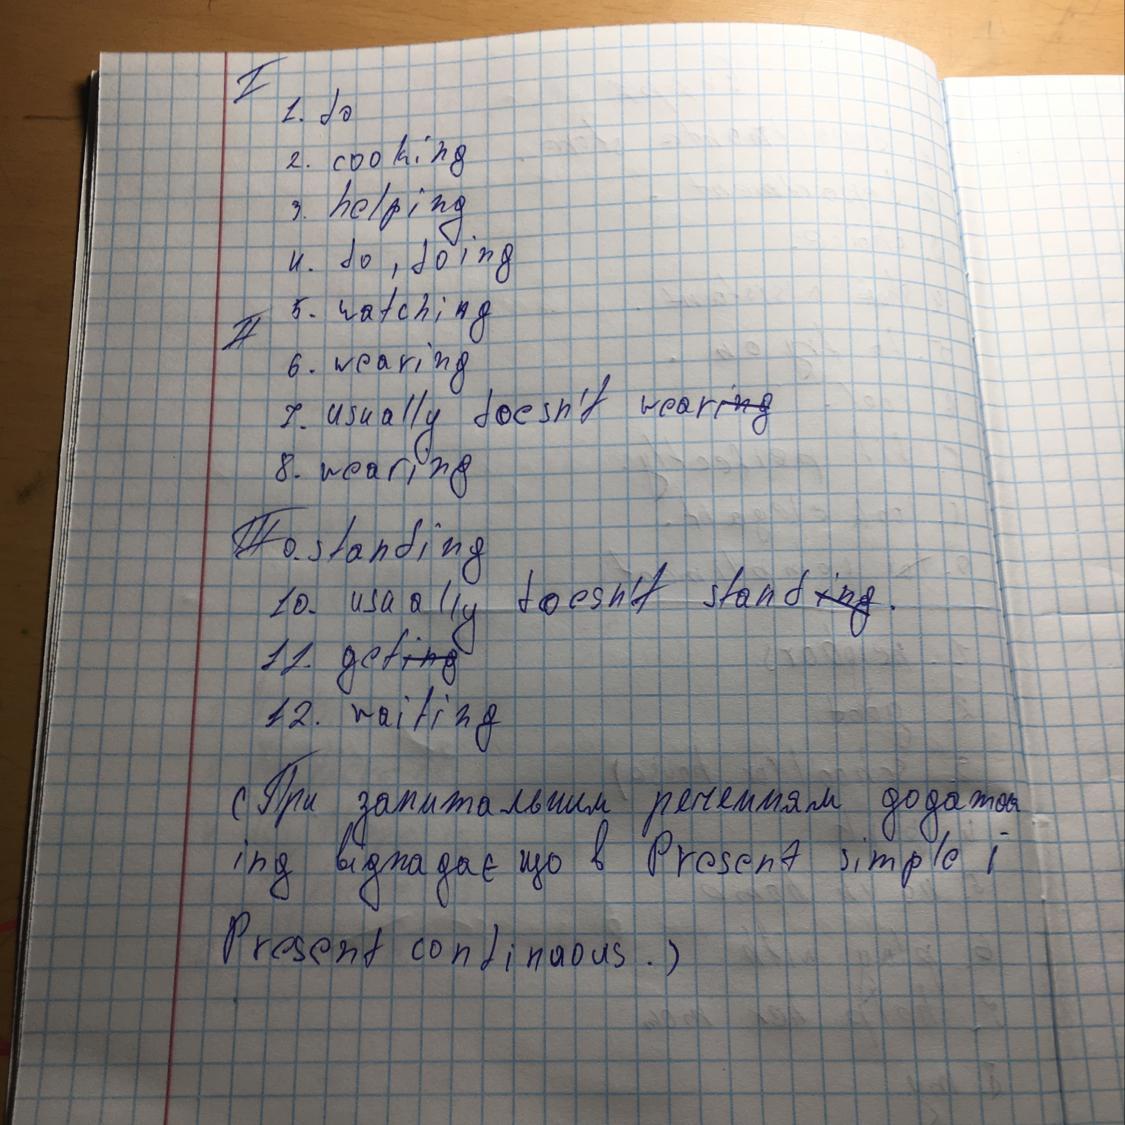 I
1. do
2. cooking
3. helping
4. do, doing
5. watching
II
6. wearing
7. usually doesn't wearing
8. wearing
III 9. standing
10. usually doesn't standing.
11. geting
12. waiting
(При запитальним реченням додаток
ing відпадає що в Present simple і
Present continuous.)